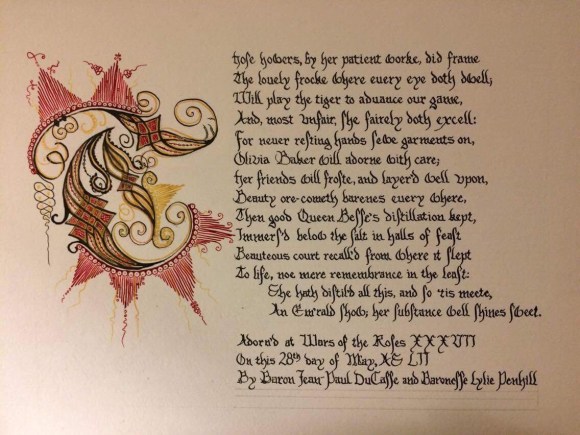 Those howers, by her patient worke, did frame
The lovely frocke where euery eye doth dwell;
Will play the tiger to aduance our game,
And, most vnfair, she fairely doth excell:
For neuer resting hands sewe garments on,
Olivia Baker will adorne with care;
Her friends will froste, and layer'd well vpon,
Beauty ore-cometh barenes euery where,
Then good Queen Besse's distillation kept,
Immers'd below the salt in halls of feast
Beauteous court recall'd from where it slept
To life, not mere remembrance in the least:
She hath distil'd all this, and so 'tis meete,
An Em'rald show; her substance well shines sweet.
Adorn'd at Wars of the Roses XXXVII
On this 28th day of May, AS LII
By Baron Jean Paul DuCasse and Baronesse Lylie Penhill